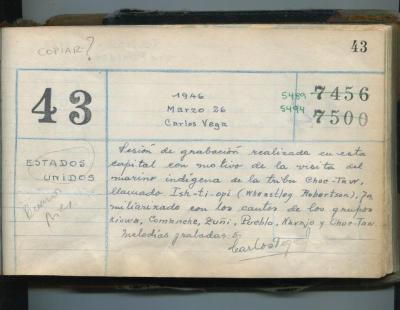 COPIAR?
43
43
1946
Marzo 26
Carlos Vega
5489 7456
5494 7500
ESTADOS
UNIDOS
Buenos
Aires
Sesión de grabación realizada en esta
capital con motivo de la visita del
marino indígena de la tribu Choc-Taw,
llamado Ish-ti-opi (Robertson). Fa
miliarizado con los cantos de los grupos
Kiowa, Comanche, Zuñi, Pueblo, Navajo y Choc-Taw
Melodías grabadas:
Carlos Vega